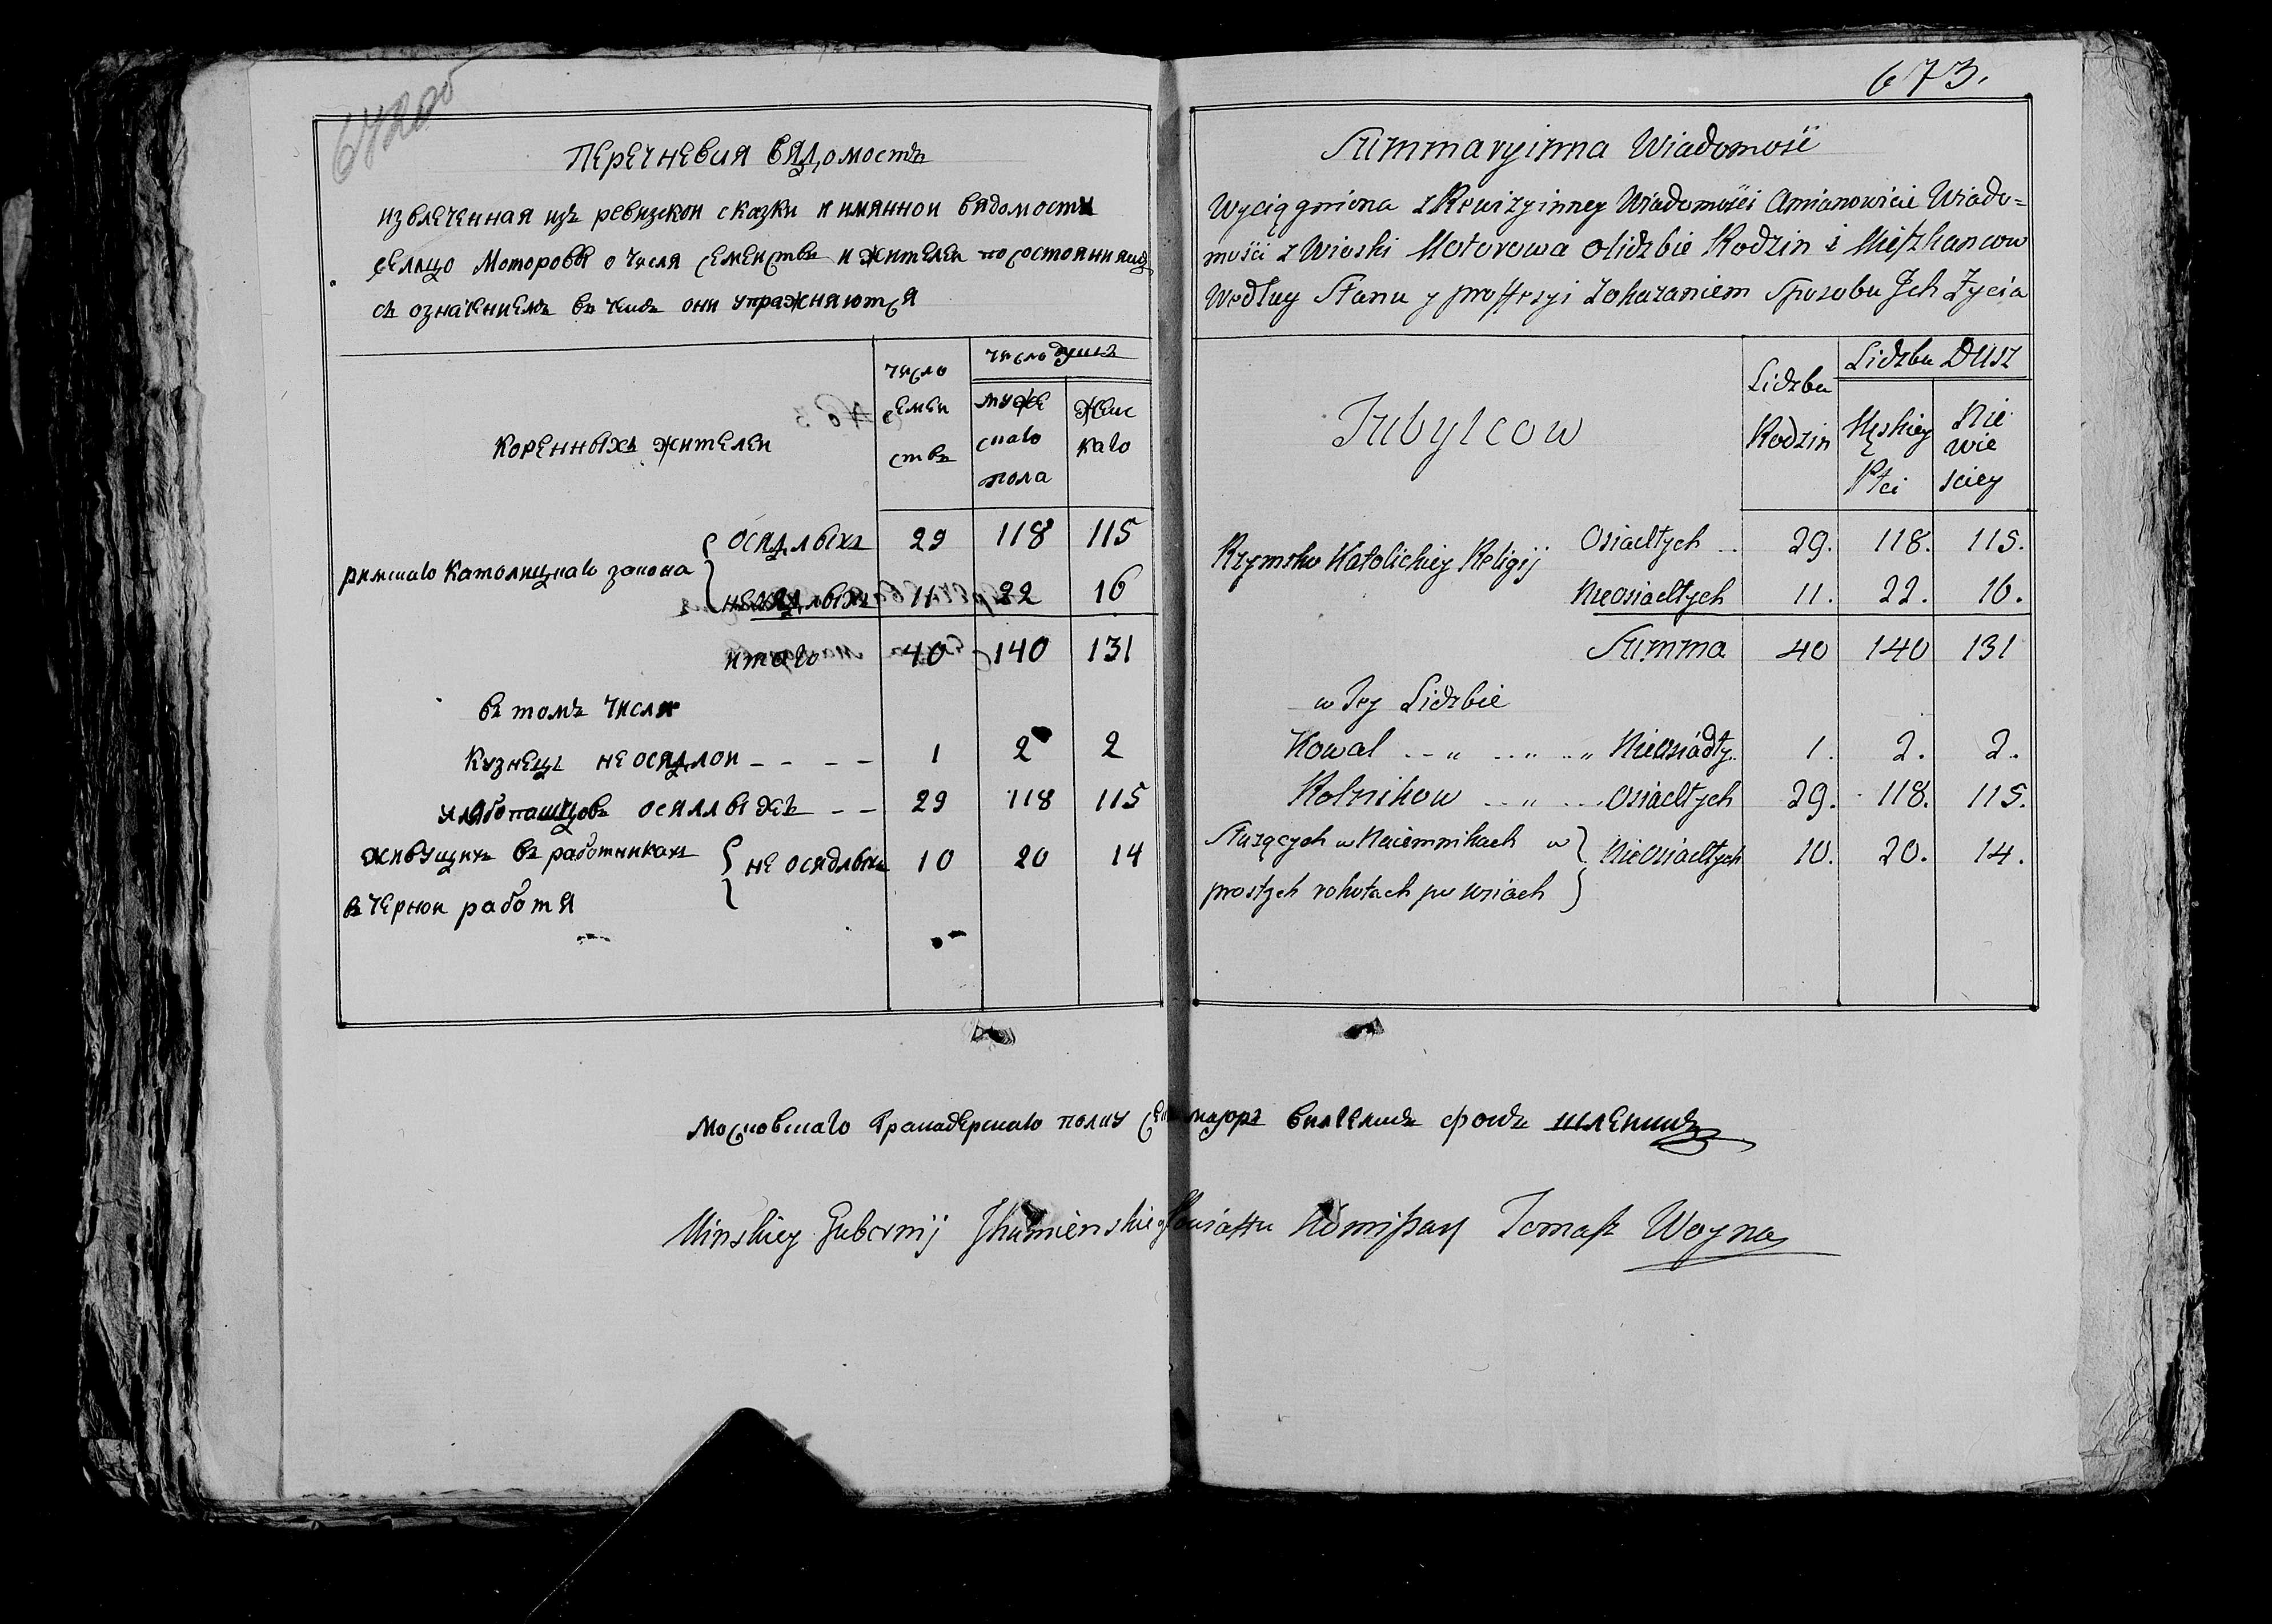 672 об
Перечневия вядомость
извлеченная изъ ревизскои сказки и имяннои вядомосты
сельцо Моторовы о числя семеиствъ и жителеи по состояниямъ
съ означениемъ въ чемъ они упражняются
коренныхъ жителеи
число семеи ствъ
число душъ
муже скаго пола
женс каго
римскаго католицкаго закона
осядлыхъ 29 118 115
неосядлыхъ 11 22 16
итого 40 140 131
въ томъ числя
кузнецъ не осядлои - - - - 1 2 2
хлябопашцовъ осядлыхъ - - 29 118 115
живущихъ въ работникахъ
не осядлыхъ 10 20 14
въ чернои работя
673.
Summaryinna Wiadomość
Wyciągniona z Rewizyinney Wiadomości Amianowicie Wiado=
mości z Wioski Motorowa o lidzbie Rodzin i Mieszkancow
Wedlug Stanu y professyi z okazaniem Sposobu Jch Życia
Tubylcow
Lidzba Rodzin
Lidzba Dusz
Męskiey Płci
Nie wie sciey
Rzymsko Katolickiey Religij
Osiadłych 29. 118. 115.
Nieosiadłych 11. 22. 16.
Summa 40 140 131
w Tey Lidzbie
Kowal Nieosiadły. 1. 2. 2.
Rolnikow Osiadłych 29. 118. 115.
Służących w Naiemnikach w
Nieosiadłych 10. 20. 14.
prostych robotach po wsiach
Московскаго Гранадерскаго полку майоръ вилгелмъ фонъ
Minskiey Gubernij Jhumienskiego Powiattu Komissarz Tomasz Woyna